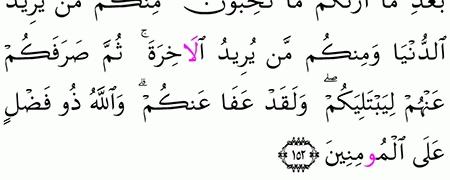 بَعْدِ مَا أَرَىٰكُم مَّا تُحِبُّونَ مِنكُم مَّن يُرِيدُ
ٱلدُّنْيَا وَمِنكُم مَّن يُرِيدُ ٱلَاخِرَةَ ۚ ثُمَّ صَرَفَكُمْ
عَنْهُمْ لِيَبْتَلِيَكُمْ ۖ وَلَقَدْ عَفَا عَنكُمْ ۗ وَٱللَّهُ ذُو فَضْلٍ
عَلَى ٱلْمُومِنِينَ ﴿١٥٢﴾